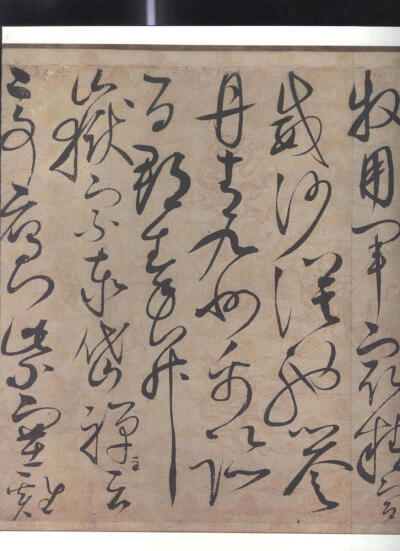 牧用軍最精宣
威沙漠馳譽
丹青九州禹跡
百郡秦并
嶽宗泰岱禪主云
亭鴈門紫塞雞